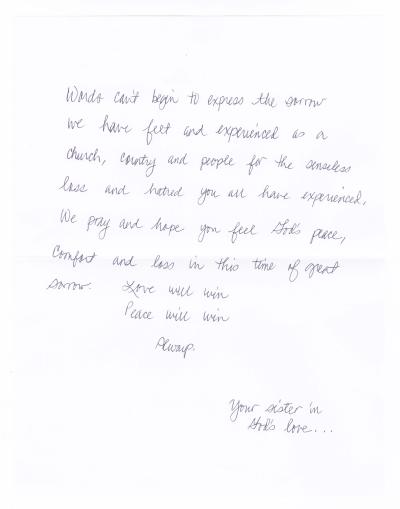 Words can't begin to express the sorrow
we have felt and experienced as a
church, country and people for the senseless
loss and hatred you all have experienced.
We pray and hope you feel God's peace,
Comfort and loss in this time of great
sorrow. Love will win
Peace will win
Always.
Your sister in
God's love...